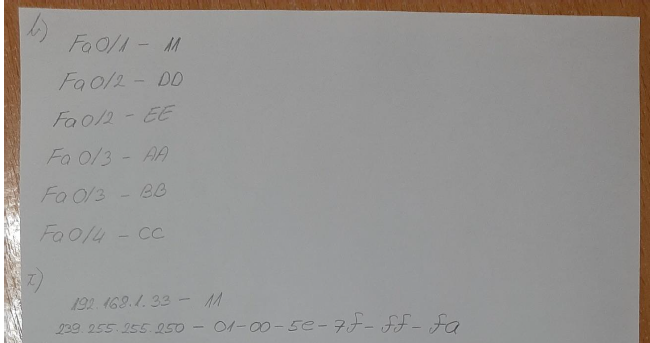 b)
Fa0/1 - 11
Fa0/2 - DD
Fa0/2 - EE
Fa0/3 - AA
Fa0/3 - BB
Fa0/4 - CC
c)
192.168.1.33 - 11
239.255.255.250 - 01-00-5e-7f-ff-fa